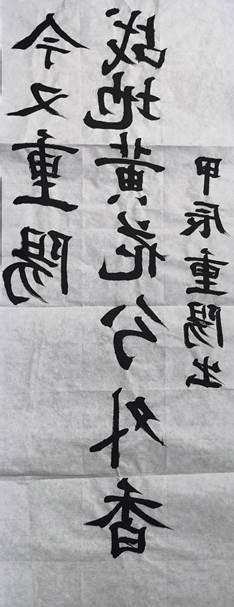 今又重陽
战地黃花分外香
甲辰重陽书